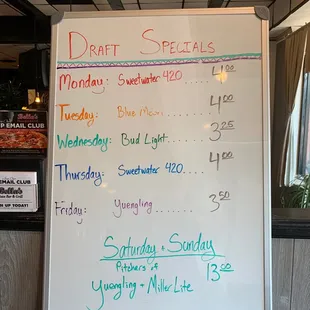 DRAFT SPECIALS
Monday: Sweetwater 420..... 4.00
Tuesday: Blue Moon........ 4.00
Wednesday: Bud Light..... 3.25
Thursday: Sweetwater 420.... 4.00
Friday: Yuengling....... 3.50
Saturday + Sunday
Pitchers of 13.00
Yuengling + Miller Lite
EMAIL CLUB
Bar & Grill
UP TODAY!